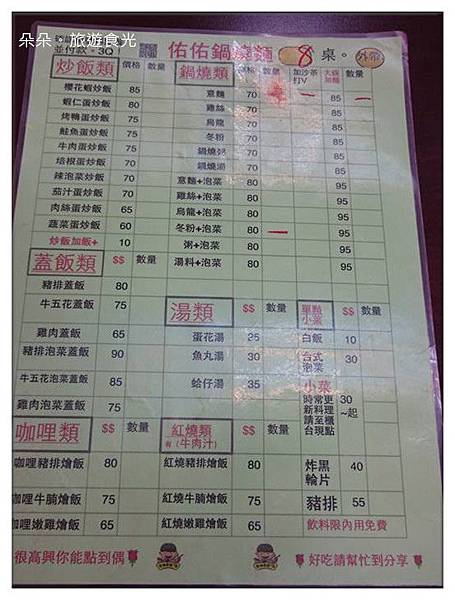 朵朵。旅遊食光
並付款。3Q! 佑佑鍋燒麵 8 桌。外帶
炒飯類 價格 數量
櫻花蝦炒飯 85
蝦仁蛋炒飯 80
烤鴨蛋炒飯 75
鮭魚蛋炒飯 75
牛肉蛋炒飯 75
培根蛋炒飯 70
辣泡菜炒飯 70
茄汁蛋炒飯 70
肉絲蛋炒飯 65
蔬菜蛋炒飯 60
炒飯加飯+ 10
鍋燒類 價格 數量 加沙茶打V 大碗加麵 數量
意麵 70 85
雞絲 70 85
烏龍 70 85
冬粉 70 85
鍋燒粥 70 85
鍋燒湯 70 85
意麵+泡菜 80 95
雞絲+泡菜 80 95
烏龍+泡菜 80 95
冬粉+泡菜 80 95
粥+泡菜 80 95
湯料+泡菜 80 95
蓋飯類 $$ 數量
豬排蓋飯 80
牛五花蓋飯 75
雞肉蓋飯 65
豬排泡菜蓋飯 90
牛五花泡菜蓋飯 85
雞肉泡菜蓋飯 75
湯類 $$ 數量
蛋花湯 25
魚丸湯 30
蛤仔湯 35
單點小菜 $$ 數量
白飯 10
台式泡菜 30
小菜
時常更新料理請至櫃台現點 30~起
炸黑輪片 40
豬排 55
飲料限內用免費
咖哩類 $$ 數量
咖哩豬排燴飯 80
咖哩牛腩燴飯 75
咖哩嫩雞燴飯 65
紅燒類 (牛肉汁) $$ 數量
紅燒豬排燴飯 80
紅燒牛腩燴飯 75
紅燒嫩雞燴飯 65
很高興你能點到偶
好吃請幫忙到分享